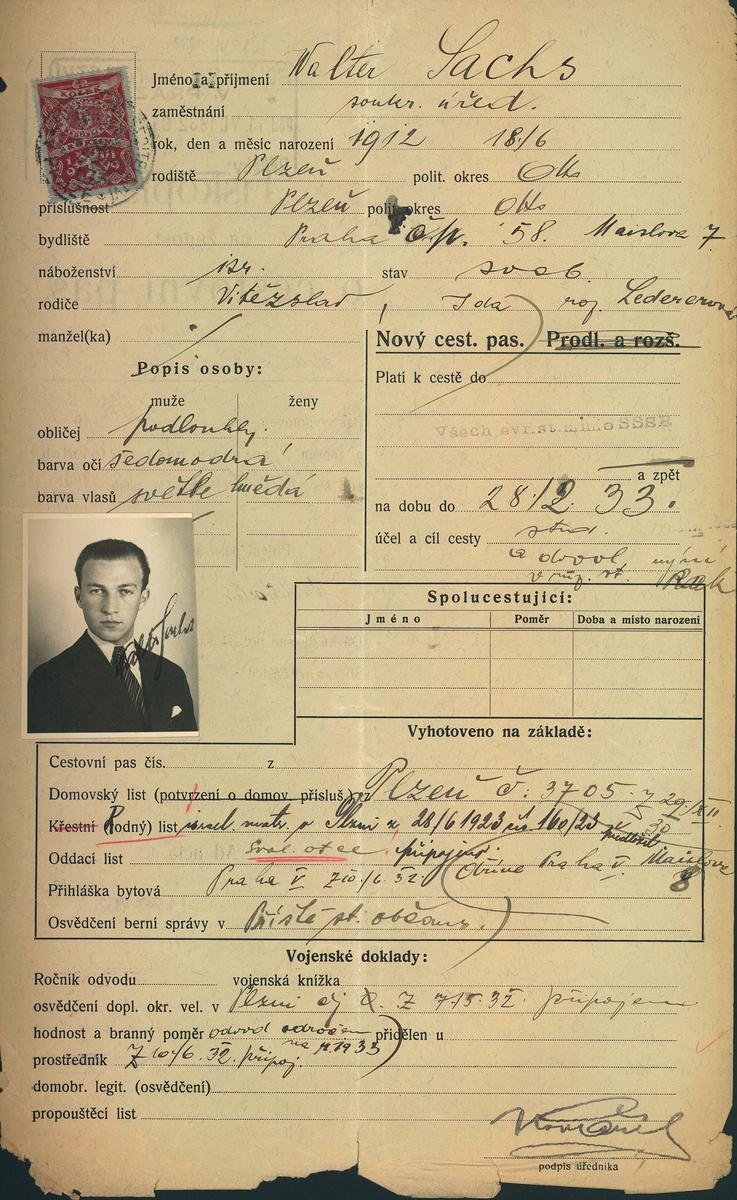 Jméno a příjmení Walter Sachs
zaměstnání soukr. úřed.
rok, den a měsíc narození 1912 18/6
rodiště Plzeň polit. okres
příslušnost Plzeň polit. okres
bydliště Praha čp. 58. Maislova 7
náboženství isr. stav svob.
rodiče Vítězslav, Ida roz. Ledererová
manžel(ka)
Nový cest. pas. Prodl. a rozš.
Popis osoby:
Platí k cestě do
muže ženy
obličej podlouhlý
Všech evr. st. mimo SSSR
barva očí šedomodrá
a zpět
barva vlasů světle hnědá
na dobu do 28/2. 33.
účel a cíl cesty stud.
a dovol. nyní
v růz. st.
Walter Sachs
Spolucestující:
Jméno Poměr Doba a místo narození
Vyhotoveno na základě:
Cestovní pas čís. z
Domovský list (potvrzení o domov. přísluš.) Plzeň č. 3705 z 29/XII
30
Křestní Rodný) list israel. matr. v Plzni z 28/6 1923 čís. 160/23
Oddací list Svol. otce připojeno.
Přihláška bytová Praha V z 10./6. 32. Praha V. Maislova
8
Osvědčení berní správy v Příště st. občan.
Vojenské doklady:
Ročník odvodu vojenská knížka
osvědčení dopl. okr. vel. v Plzni z 7/5. 32. připojeno
hodnost a branný poměr odvod odročen přidělen u
na 1933
prostředník z 10./6. 32. připoj.
domobr. legit. (osvědčení)
propouštěcí list
podpis úředníka